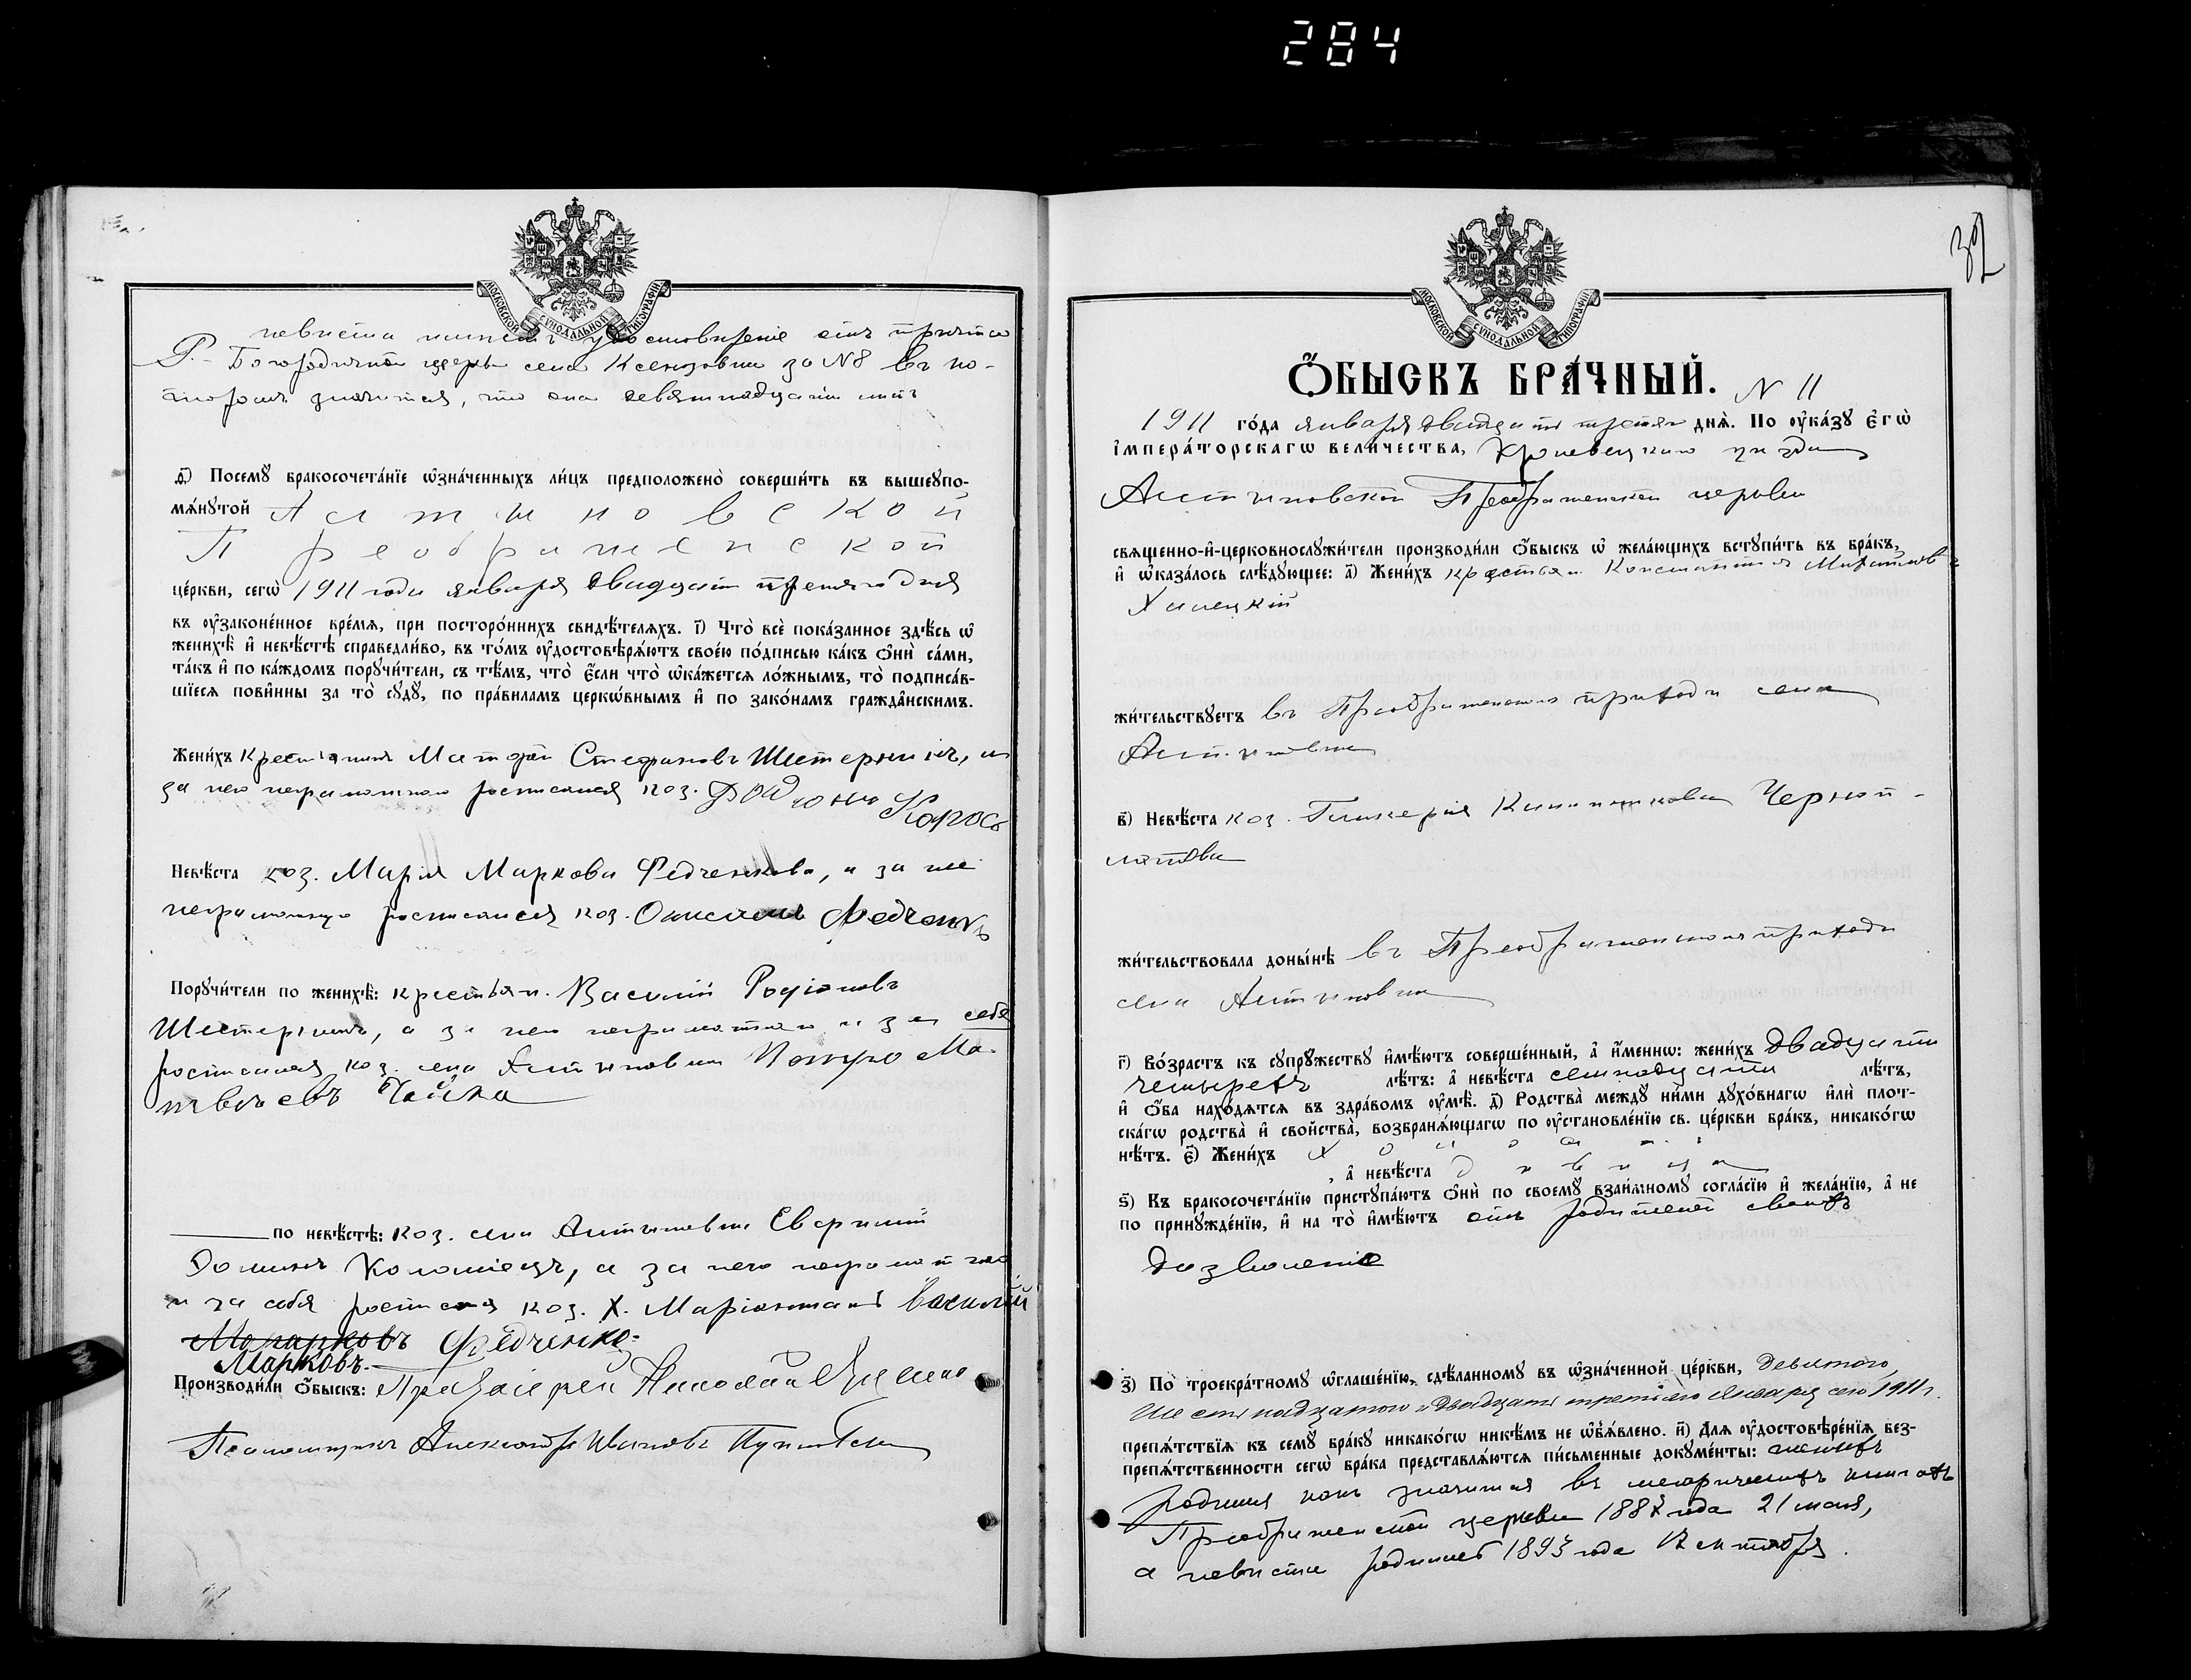 284
МОСКОВСКОЙ СѴНОДАЛЬНОЙ ТИПОГРАФІИ
невѣста имѣетъ удостовѣреніе отъ причта
Р.- Богородичной церкви села Ксензовки за №8 въ ко-
торомъ значится, что она девятнадцати лѣтъ
ѳ҃) Посемꙋ̀ бракосочета́нїе ѡ҆зна́ченныхъ ли́цъ предположено̀ соверши́ть въ вышеꙋпо-
мѧ́нꙋтой Алтыновской
Преображенской
це́ркви, сегѡ̀ 1911 года января двадцать третьяго дня
въ ᲂу҆зако́ненное вре́мѧ, при посторо́ннихъ свидѣ́телѧхъ. і҃) Что̀ всѐ пока́занное здѣ́сь ѡ҆
женихѣ̀ и҆ невѣ́стѣ справедли́во, въ то́мъ ᲂу҆достовѣрѧ́ютъ свое́ю по́дписью ка́къ ѻ҆нѝ са́ми,
та́къ и҆ по ка́ждомъ порꙋчи́тели, съ тѣ́мъ, что̀ є҆́сли что̀ ѡ҆ка́жетсѧ ло́жнымъ, то̀ подписа́в-
шїесѧ пови́нны за то̀ сꙋдꙋ̀, по пра́виламъ церкѡ́внымъ и҆ по зако́намъ гражда́нскимъ.
Жени́хъ крестьянинъ Матфей Стефановъ Шестернинъ, а
за него неграмотнаго росписался коз. Карось
Невѣ́ста коз. Марія Маркова Федченкова, а за нее
неграмотную росписался коз. Федченко
Порꙋчи́тели по женихѣ̀: крестьян. Василій Родіоновъ
Шестернинъ, а за него неграмотнаго и за себя
росписался коз. села Алтыновки Петро Ма-
твѣевъ Чайка
по невѣ́стѣ: коз. села Алтыновки
Коломіецъ, а за него неграмотнаго
и за себя росписался коз. х. Василій
Федченко
Марковъ.
Производи́ли ѻ҆́быскъ: Протоіерей Николай
Псаломщикъ Александръ Ивановъ
32
МОСКОВСКОЙ СѴНОДАЛЬНОЙ ТИПОГРАФІИ
Ѻ҆́БЫСКЪ БРА́ЧНЫЙ. N 11
1911 го́да января двадцать третьяго днѧ̀. По ᲂу҆ка́зꙋ є҆гѡ̀
і҆мпера́торскагѡ вели́чества, Кролевецкаго уѣзда
Алтыновской Преображенской церкви
свѧщенно-и҆-церковнослꙋжи́тели производи́ли ѻ҆́быскъ ѡ҆ жела́ющихъ встꙋпи́ть въ бра́къ,
и҆ ѡ҆каза́лось слѣ́дꙋющее: а҃) Жени́хъ крестьян. Константинъ
жи́тельствꙋетъ въ Преображенскомъ приходѣ села
Алтыновки
в҃) Невѣ́ста коз. Гликерія
жи́тельствовала доны́нѣ въ Преображенскомъ приходѣ
села Алтыновки
г҃) Во́зрастъ къ сꙋпрꙋ́жествꙋ и҆мѣ́ютъ соверше́нный, а҆ и҆́меннѡ: жени́хъ двадцати
четырехъ лѣ́тъ: а҆ невѣ́ста семнадцати лѣ́тъ,
и҆ ѻ҆́ба нахо́дѧтсѧ въ здра́вомъ ᲂу҆мѣ̀. д҃) Родства̀ междꙋ̀ ни́ми дꙋхо́внагѡ и҆лѝ плот-
ска́гѡ родства̀ и҆ свойства̀, возбранѧ́ющагѡ по ᲂу҆становле́нїю св. це́ркви бра́къ, никако́гѡ
нѣ́тъ. є҃) Жени́хъ холостъ
, а҆ невѣ́ста дѣвица
ѕ҃) Къ бракосочета́нїю пристꙋпа́ютъ ѻ҆нѝ по своемꙋ̀ взаи́мномꙋ согла́сїю и҆ жела́нїю, а҆ не
по принꙋжде́нїю, и҆ на то̀ и҆мѣ́ютъ отъ родителей своихъ
дозволеніе
з҃) По̀ троекра́тномꙋ ѡ҆глаше́нїю, сдѣ́ланномꙋ въ ѡ҆зна́ченной це́ркви, девятого,
шестнадцатого и двадцать третьяго Января сего 1911 г.
препѧ́тствїѧ къ семꙋ̀ бра́кꙋ никако́гѡ никѣ́мъ не ѡ҆б̾ѧ́влено. и҃) Для ᲂу҆достовѣре́нїѧ без-
препѧ́тственности сегѡ̀ бра́ка представлѧ́ютсѧ пи́сьменные докꙋме́нты: женихъ
родился какъ значится въ метрическихъ книгахъ
Преображенской церкви года 21 мая,
а невѣста родилась 1893 года сентября.